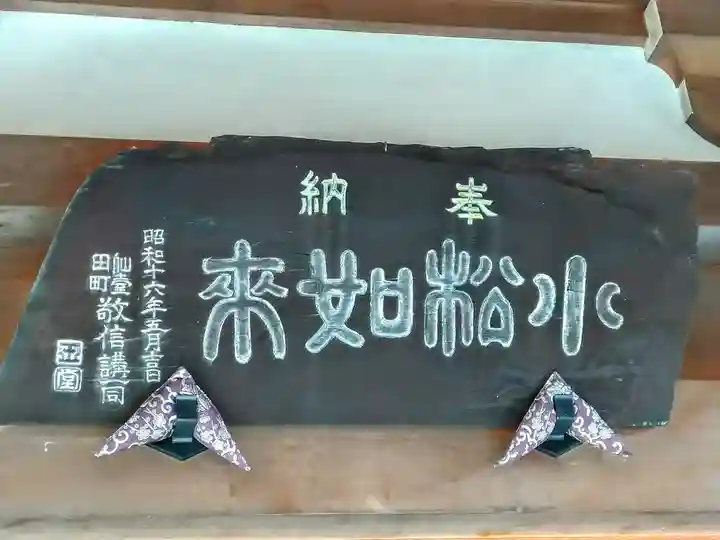 奉納
小松如來
昭和十六年五月吉日
仙臺田町 敬信講一同